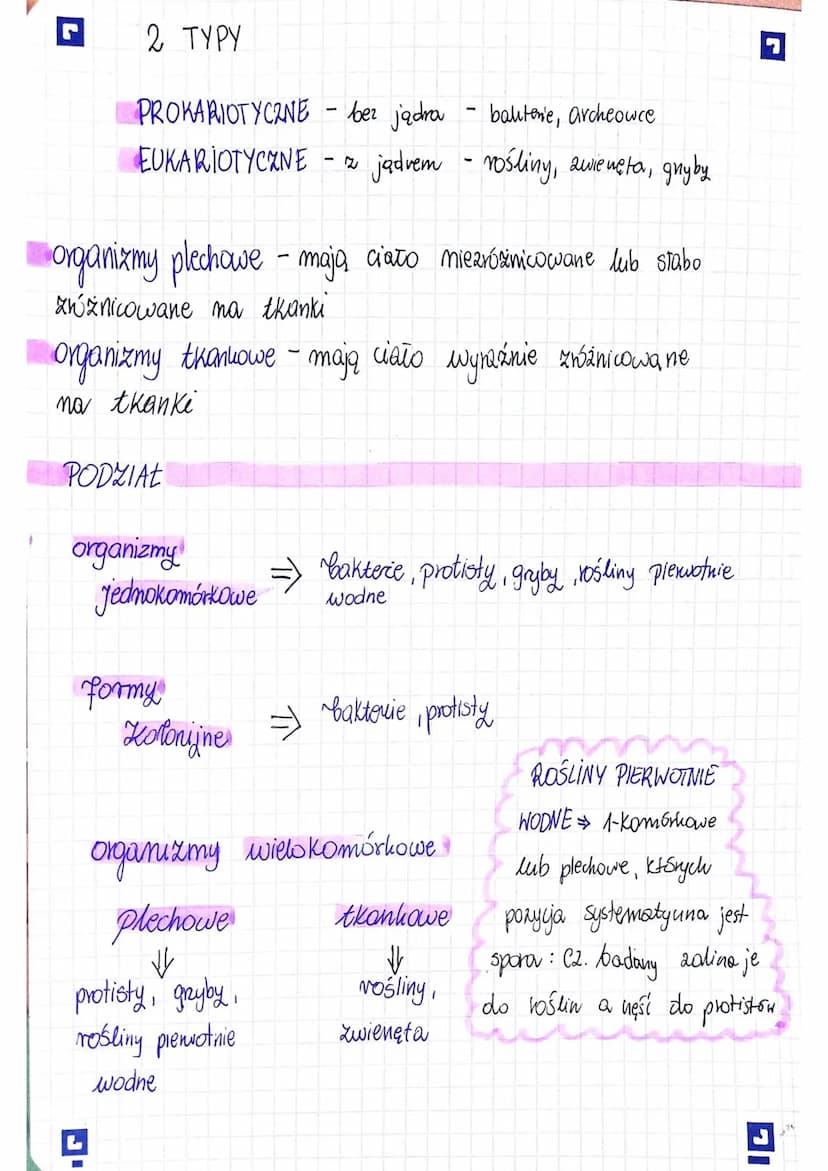 2 TYPY
PROKARIOTYCZNE - bez jądra - bakterie, archeowce
EUKARIOTYCZNE - z jądrem - rośliny, zwierzęta, grzyby
organizmy plechowe - mają ciało niezróżnicowane lub słabo
zróżnicowane na tkanki
organizmy tkankowe - mają ciało wyraźnie zróżnicowane
na tkanki
PODZIAŁ
organizmy
jednokomórkowe ⇒ bakterie, protisty, grzyby, rośliny pierwotnie
wodne
formy
kolonijne ⇒ bakterie, protisty
organizmy wielokomórkowe
plechowe tkankowe
⇓ ⇓
protisty, grzyby, rośliny,
rośliny pierwotnie zwierzęta
wodne
ROŚLINY PIERWOTNIE
WODNE ⇒ 1-komórkowe
lub plechowe, których
pozycja systematyczna jest
sporna: cz. badaczy zalicza je
do roślin a część do protistów